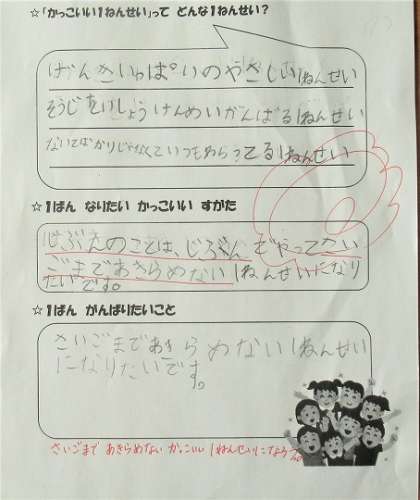 ☆「かっこいい1ねんせい」って どんな1ねんせい？
げんきいっぱいのやさしい1ねんせい
そうじをいっしょうけんめいがんばる1ねんせい
ないてばかりじゃなくていつもわらってる1ねんせい
☆1ばん なりたい かっこいい すがた
じぶんのことは、じぶんでやってさい
ごまであきらめない1ねんせいになり
たいです。
☆1ばん がんばりたいこと
さいごまであきらめない1ねんせい
になりたいです。
さいごまで あきらめない かっこいい 1ねんせいになろうね